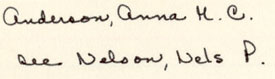 Anderson, Anna H. C.
see Nelson, Nels P.